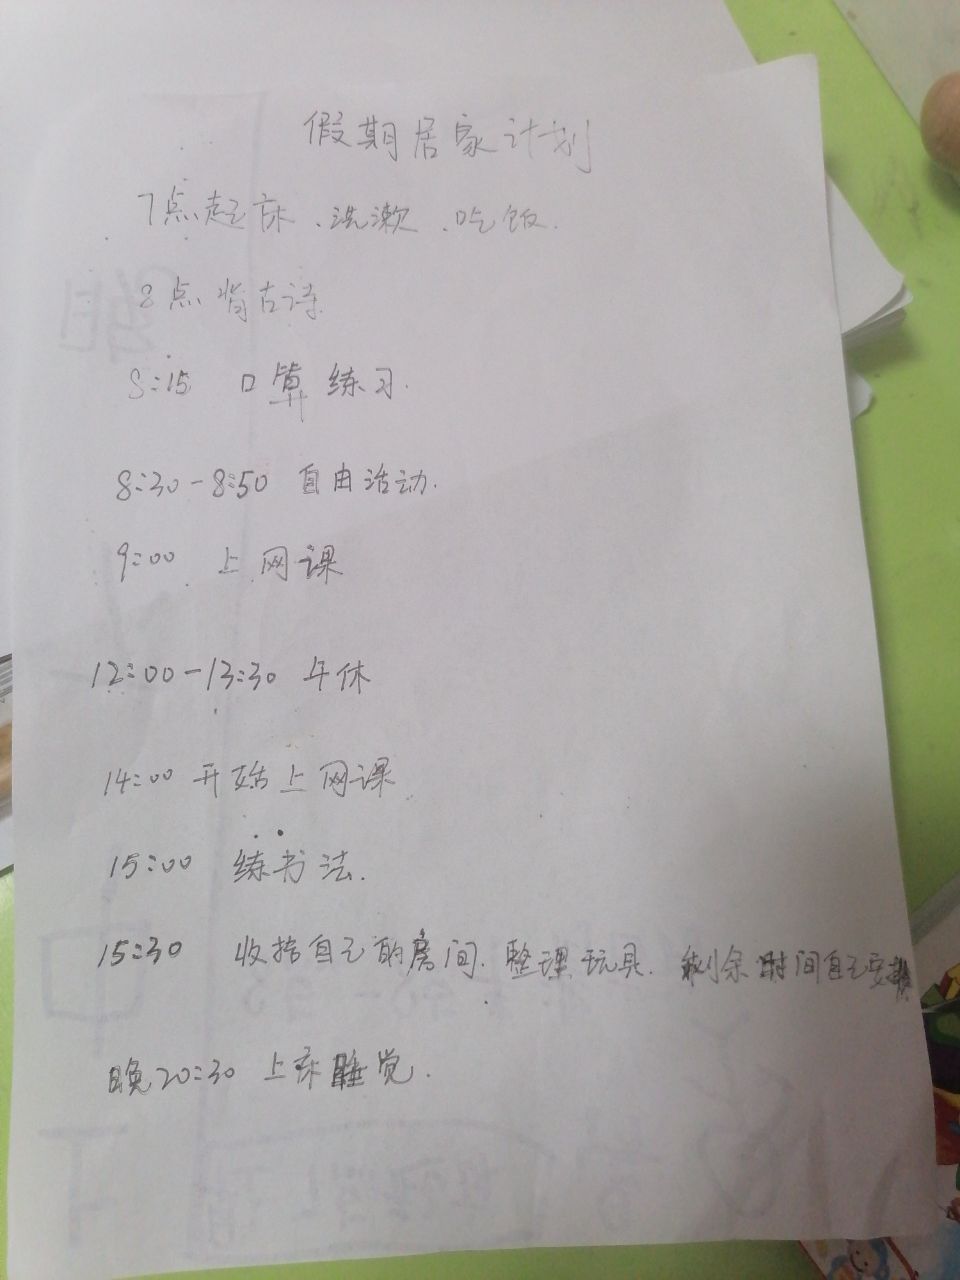 假期居家计划
7点起床、洗漱、吃饭.
8点背古诗.
8:15 口算练习.
8:30-8:50 自由活动.
9:00 上网课
12:00-13:30 午休
14:00 开始上网课
15:00 练书法.
15:30 收拾自己的房间.整理玩具.剩余时间自己安排
晚20:30 上床睡觉.